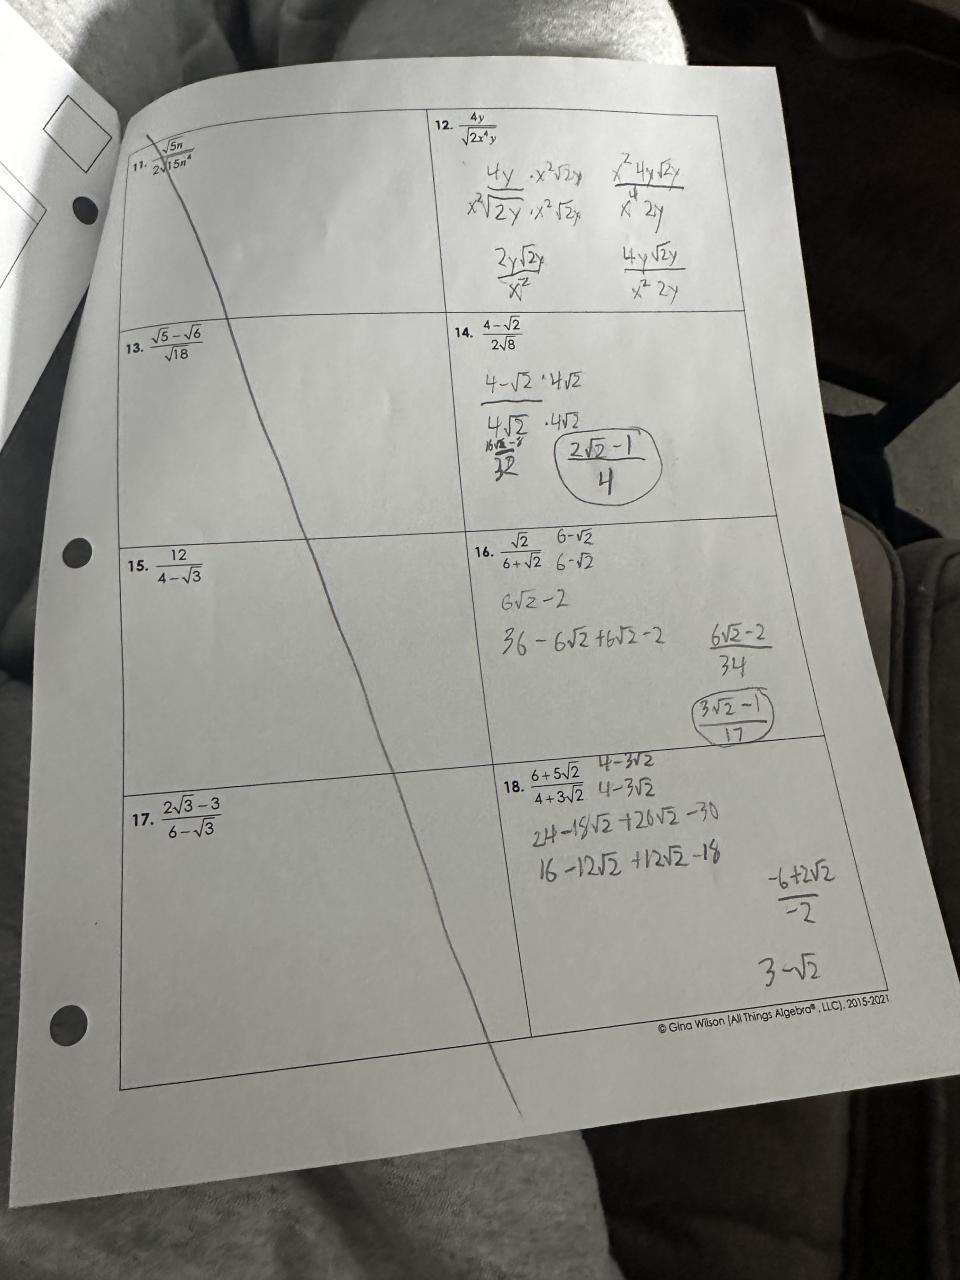 11. √5n / 2√15n⁴
12. 4y / √2x⁴y
4y · x²√2y / x²√2y · x²√2y
x² 4y√2y / x⁴ 2y
2y√2y / x²
4y√2y / x² 2y
13. √5 − √6 / √18
14. 4 − √2 / 2√8
4 − √2 · 4√2 / 4√2 · 4√2
16√2 − 8 / 32
2√2 − 1 / 4
15. 12 / 4 − √3
16. √2 / 6 + √2 6 − √2 / 6 − √2
6√2 − 2
36 − 6√2 + 6√2 − 2
6√2 − 2 / 34
3√2 − 1 / 17
17. 2√3 − 3 / 6 − √3
18. 6 + 5√2 / 4 + 3√2 4 − 3√2 / 4 − 3√2
24 − 18√2 + 20√2 − 30
16 − 12√2 + 12√2 − 18
−6 + 2√2 / −2
3 − √2
© Gina Wilson (All Things Algebra®, LLC), 2015-2021